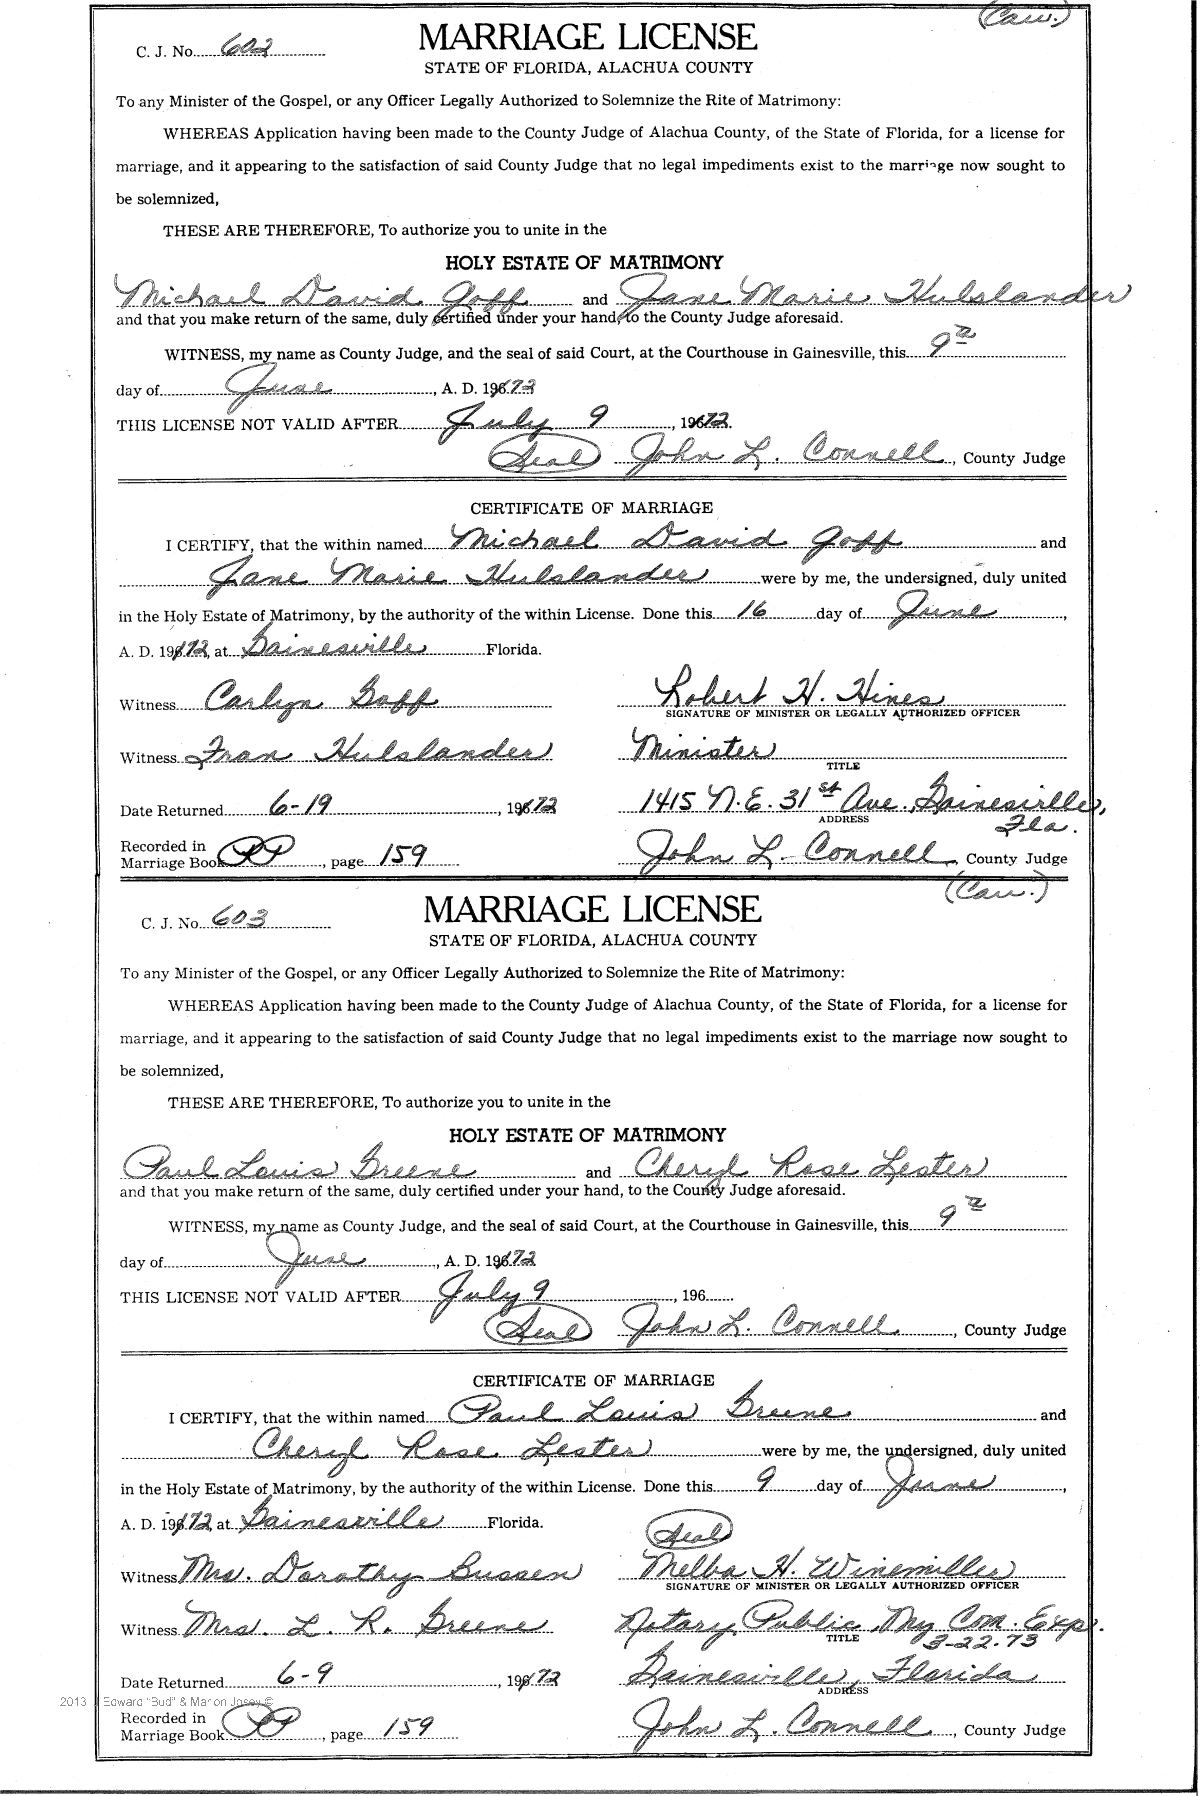 (Cau.)
C. J. No. 602
MARRIAGE LICENSE
STATE OF FLORIDA, ALACHUA COUNTY
To any Minister of the Gospel, or any Officer Legally Authorized to Solemnize the Rite of Matrimony:
WHEREAS Application having been made to the County Judge of Alachua County, of the State of Florida, for a license for
marriage, and it appearing to the satisfaction of said County Judge that no legal impediments exist to the marriage now sought to
be solemnized,
THESE ARE THEREFORE, To authorize you to unite in the
HOLY ESTATE OF MATRIMONY
Michael David Goff and Jane Marie Hulslander
and that you make return of the same, duly certified under your hand, to the County Judge aforesaid.
WITNESS, my name as County Judge, and the seal of said Court, at the Courthouse in Gainesville, this 9th
day of June, A. D. 1972
THIS LICENSE NOT VALID AFTER July 9, 1972.
(Seal) John L. Connell, County Judge
CERTIFICATE OF MARRIAGE
I CERTIFY, that the within named Michael David Goff and
Jane Marie Hulslander were by me, the undersigned, duly united
in the Holy Estate of Matrimony, by the authority of the within License. Done this 16 day of June,
A. D. 1972, at Gainesville Florida.
Witness Carlyn Goff Robert H. Hines
SIGNATURE OF MINISTER OR LEGALLY AUTHORIZED OFFICER
Witness Fran Hulslander Minister
TITLE
Date Returned 6-19, 1972 1415 N.E. 31st Ave., Gainesville,
ADDRESS Fla.
Recorded in
Marriage Book PP, page 159 John L. Connell, County Judge
(Cau.)
C. J. No. 603
MARRIAGE LICENSE
STATE OF FLORIDA, ALACHUA COUNTY
To any Minister of the Gospel, or any Officer Legally Authorized to Solemnize the Rite of Matrimony:
WHEREAS Application having been made to the County Judge of Alachua County, of the State of Florida, for a license for
marriage, and it appearing to the satisfaction of said County Judge that no legal impediments exist to the marriage now sought to
be solemnized,
THESE ARE THEREFORE, To authorize you to unite in the
HOLY ESTATE OF MATRIMONY
Paul Louis Greene and Cheryl Rose Lester
and that you make return of the same, duly certified under your hand, to the County Judge aforesaid.
WITNESS, my name as County Judge, and the seal of said Court, at the Courthouse in Gainesville, this 9th
day of June, A. D. 1972
THIS LICENSE NOT VALID AFTER July 9, 196
(Seal) John L. Connell, County Judge
CERTIFICATE OF MARRIAGE
I CERTIFY, that the within named Paul Louis Greene and
Cheryl Rose Lester were by me, the undersigned, duly united
in the Holy Estate of Matrimony, by the authority of the within License. Done this 9 day of June,
A. D. 1972, at Gainesville Florida.
(Seal)
Witness Mrs. Dorothy Bussen Melba H. Winemiller
SIGNATURE OF MINISTER OR LEGALLY AUTHORIZED OFFICER
Witness Mrs. L. R. Greene Notary Public, My Com. Exp.
TITLE 3-22-73
Date Returned 6-9, 1972 Gainesville, Florida
ADDRESS
2013 Edward "Bud" & Marion Josey ©
Recorded in
Marriage Book PP, page 159 John L. Connell, County Judge